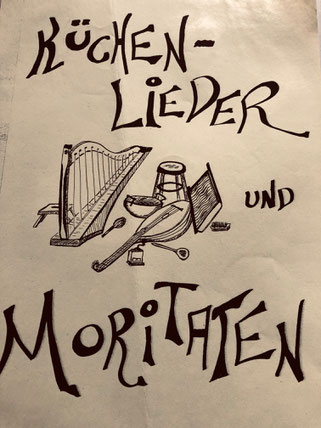 KÜCHEN-
LIEDER
UND
MORITATEN